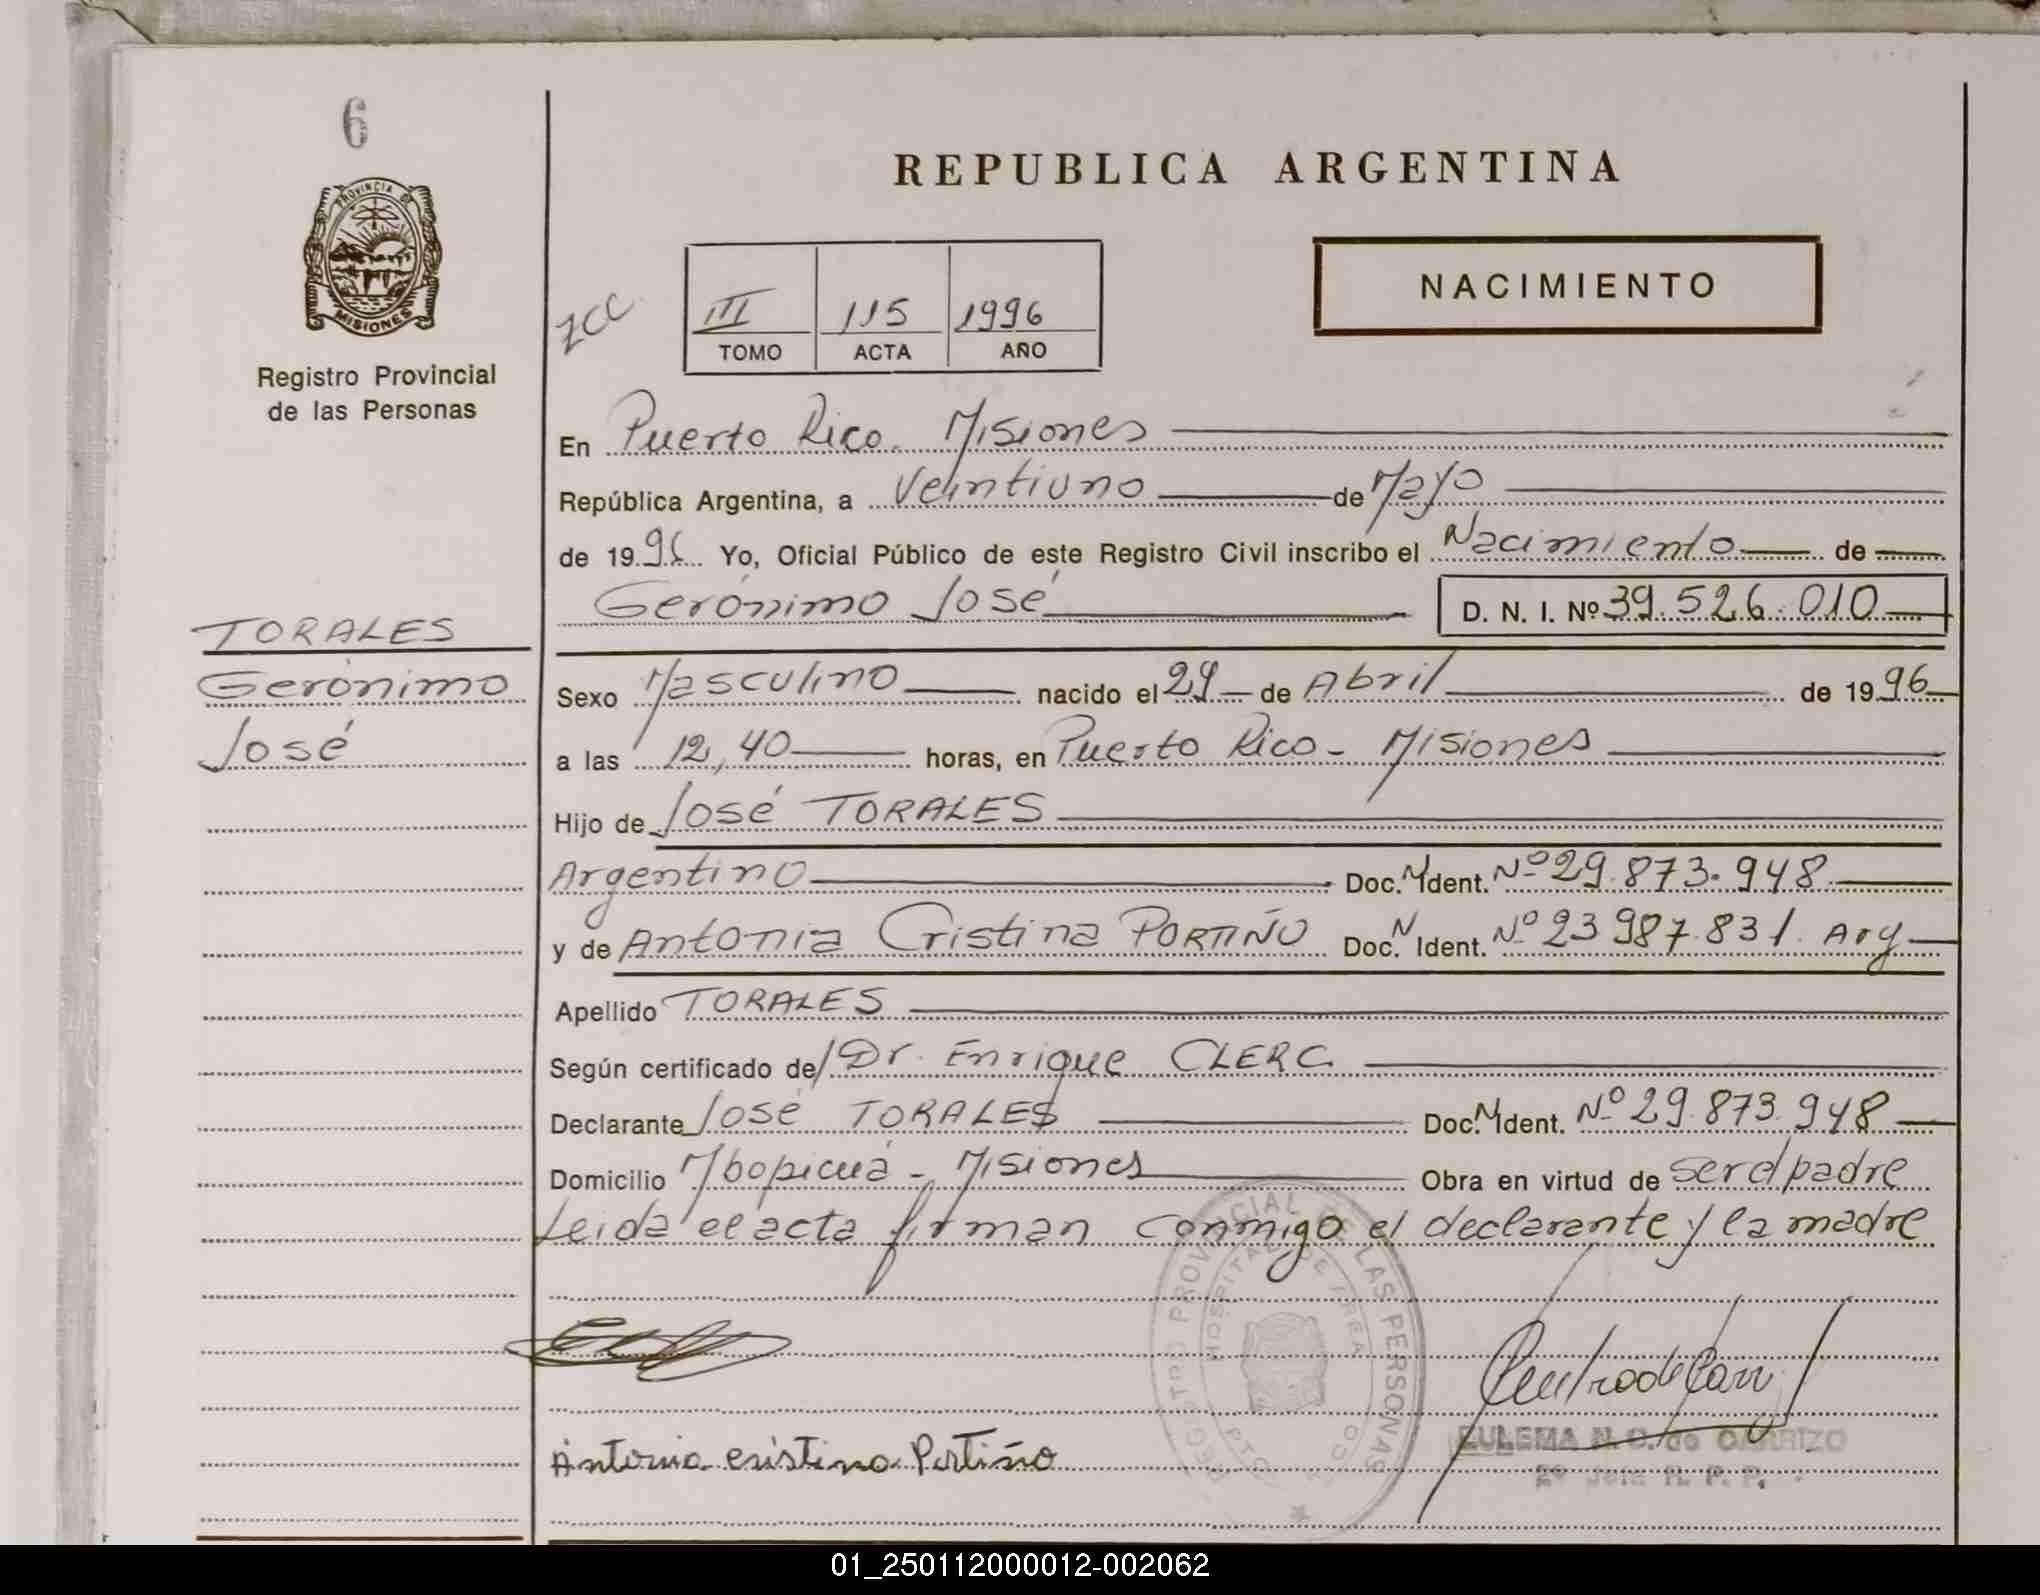 6
PROVINCIA DE
MISIONES
Registro Provincial
de las Personas
REPUBLICA ARGENTINA
NACIMIENTO
III 115 1996
TOMO ACTA AÑO
En Puerto Rico. Misiones
República Argentina, a Veintiuno de Mayo
de 1996 Yo, Oficial Público de este Registro Civil inscribo el Nacimiento de
Gerónimo José D. N. I. Nº 39.526.010
TORALES
Gerónimo
José
Sexo Masculino nacido el 29 de Abril de 1996
a las 12,40 horas, en Puerto Rico - Misiones
Hijo de José TORALES
Argentino Doc. N Ident. Nº 29.873.948
y de Antonia Cristina PORTIÑO Doc. N Ident. Nº 23 987.831. Arg
Apellido TORALES
Según certificado de Dr. Enrique CLERC
Declarante José TORALES Doc. N Ident. Nº 29.873.948
Domicilio Mbopicuá - Misiones Obra en virtud de ser el padre
Leida el acta firman conmigo el declarante y la madre
REGISTRO PROVINCIAL DE LAS PERSONAS
HOSPITAL DE AREA
PTO. RICO
Antonia cristina Portiño
EULEMA N. C. de CARRIZO
2º Jefa R. P. P.
01_250112000012-002062